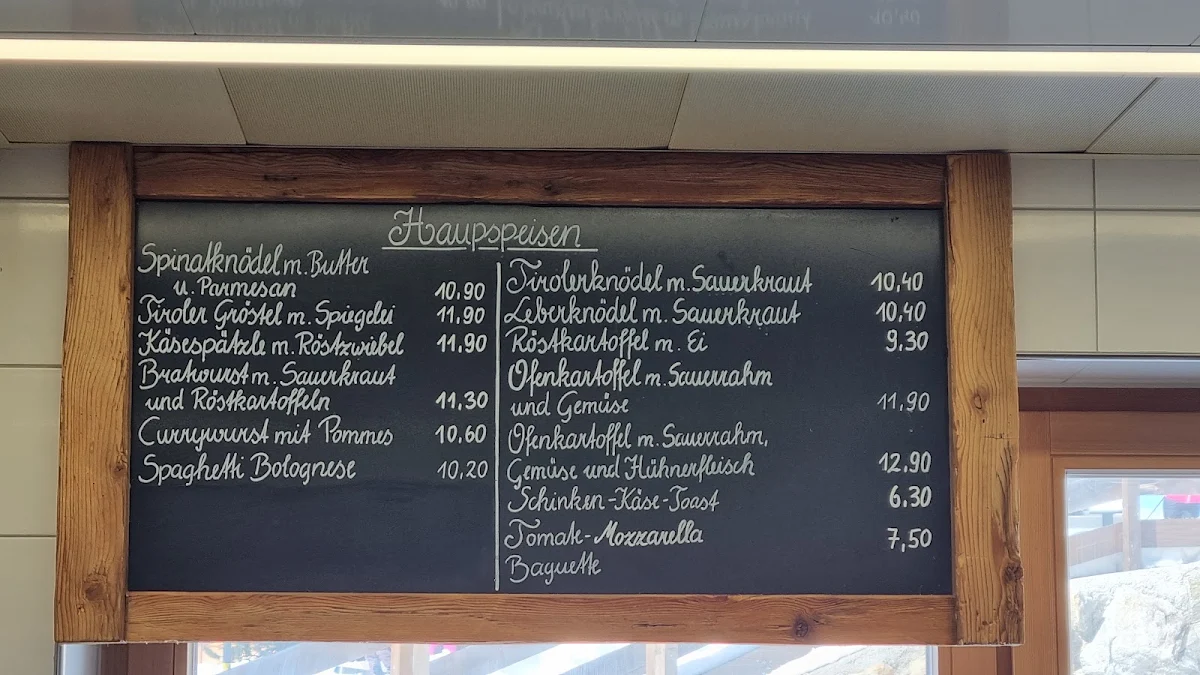 Haupspeisen
Spinatknödel m. Butter
u. Parmesan 10,90
Tiroler Gröstel m. Spiegelei 11,90
Käsespätzle m. Röstzwiebel 11,90
Bratwurst m. Sauerkraut
und Röstkartoffeln 11,30
Currywurst mit Pommes 10,60
Spaghetti Bolognese 10,20
Tirolerknödel m. Sauerkraut 10,40
Leberknödel m. Sauerkraut 10,40
Röstkartoffel m. Ei 9,30
Ofenkartoffel m. Sauerrahm
und Gemüse 11,90
Ofenkartoffel m. Sauerrahm,
Gemüse und Hühnerfleisch 12,90
Schinken-Käse-Toast 6,30
Tomate-Mozzarella 7,50
Baguette